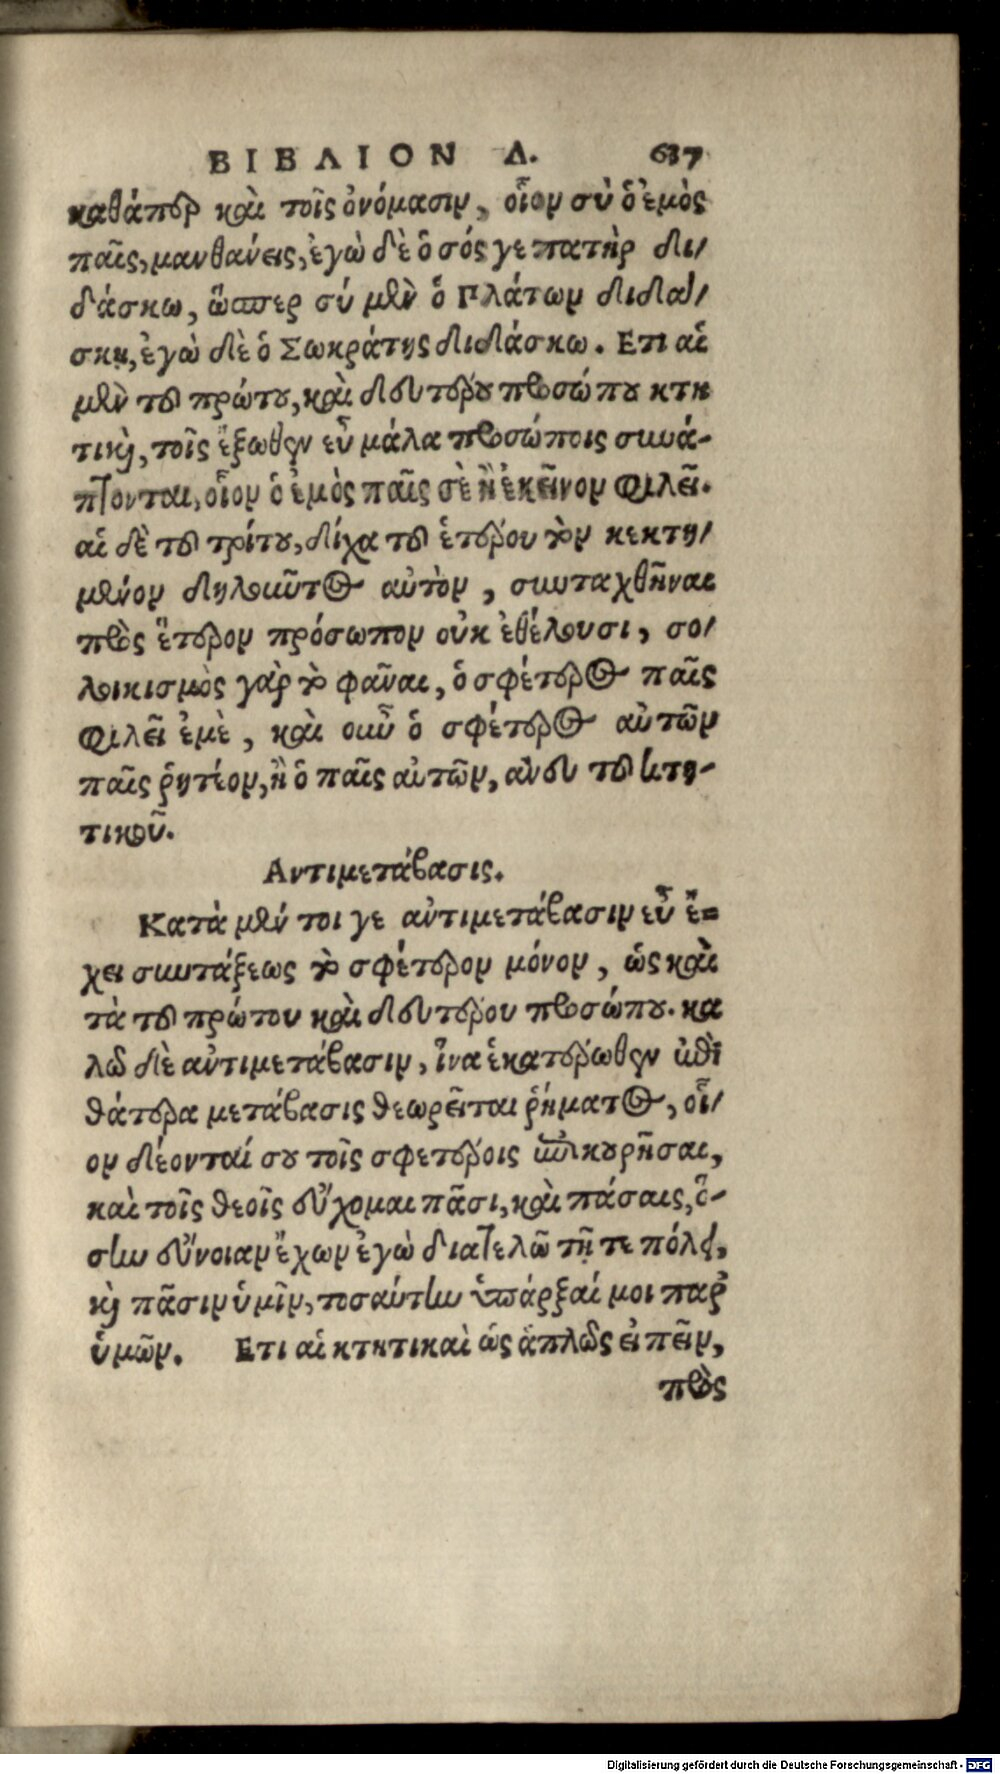 ΒΙΒΛΙΟΝ Δ. 637
καθάπερ καὶ τοῖς ὀνόμασιν, οἷον σὺ ὁ ἐμὸς
παῖς, μανθάνεις, ἐγὼ δὲ ὁ σός γε πατὴρ δι/
δάσκω, ὥσπερ σύ μὲν ὁ Πλάτων διδά/
σκῃ, ἐγὼ δὲ ὁ Σωκράτης διδάσκω. Ετι αἱ
μὲν τοῦ πρώτου, καὶ δευτέρου προσώπου κτη
τικαὶ, τοῖς ἔξωθεν εὖ μάλα προσώποις συνά-
πτονται, οἷον ὁ ἐμὸς παῖς σὲ ἢ ἐκεῖνον φιλεῖ.
αἱ δὲ τοῦ τρίτου, δίχα τοῦ ἑτέρου τὸν κεκτη/
μένον δηλοῦντος αὐτὸν, συνταχθῆναι
πρὸς ἕτερον πρόσωπον οὐκ ἐθέλουσι, σο/
λοικισμὸς γὰρ τὸ φᾶναι, ὁ σφέτερος παῖς
φιλεῖ ἐμὲ, καὶ οὖν ὁ σφέτερος αὐτῶν
παῖς ῥητέον, ἢ ὁ παῖς αὐτῶν, ἄνευ τοῦ κτη-
τικοῦ.
Αντιμετάβασις.
Κατὰ μέν τοι γε ἀντιμετάβασιν εὖ ἔ=
χει συντάξεως τὸ σφέτερον μόνον, ὡς καὶ
τὰ τοῦ πρώτου καὶ δευτέρου προσώπου. κα
λῶ δὲ ἀντιμετάβασιν, ἵνα ἑκατέρωθεν ἐπὶ
θάτερα μετάβασις θεωρεῖται ῥήματος, οἷ/
ον δέονταί σου τοῖς σφετέροις ἐπικουρῆσαι,
καὶ τοῖς θεοῖς εὔχομαι πᾶσι, καὶ πάσαις, ὅ-
σην εὔνοιαν ἔχων ἐγὼ διατελῶ τῇ τε πόλει,
καὶ πᾶσιν ὑμῖν, τοσαύτην ὑπάρξαί μοι παρ᾽
ὑμῶν. Ετι αἱ κτητικαὶ ὡς ἁπλῶς εἰπεῖν,
πρὸς
Digitalisierung gefördert durch die Deutsche Forschungsgemeinschaft - DFG